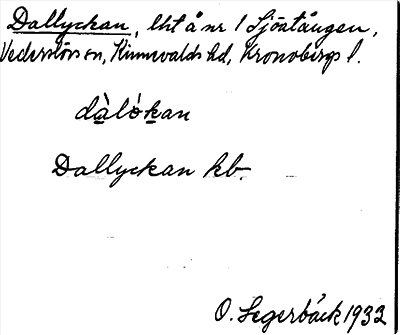 Dallyckan, lht å nr 1 Sjöatången,
Vederslövs sn, Kinnevalds hd, Kronobergs l.
dàlókan
Dallyckan kb.
O. Segerbäck 1932